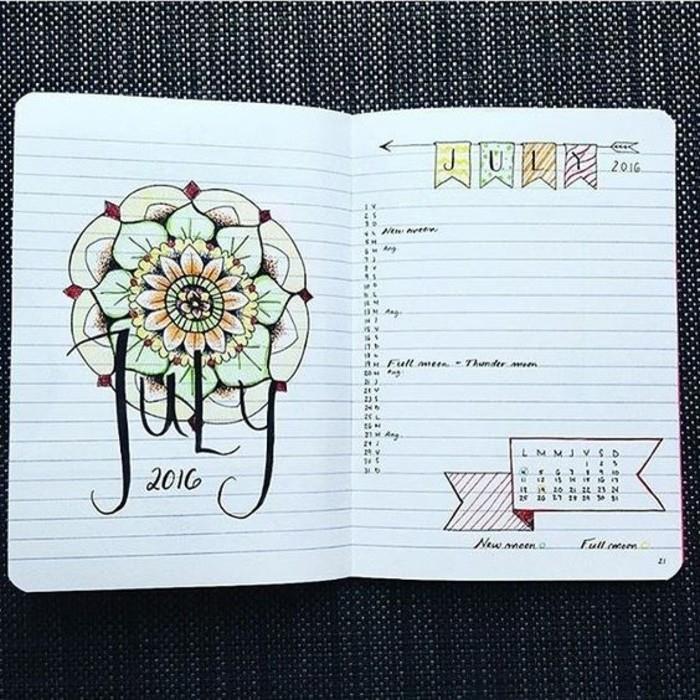 JULY
2016
JULY
2016
1 V
2 S
3 D
4 L New moon
5 M
6 M Ang.
7 J
8 V
9 S
10 D
11 L
12 M
13 M Ang.
14 J
15 V
16 S
17 D
18 L
19 M Full moon - Thunder moon
20 M Ang.
21 J
22 V
23 S
24 D
25 L
26 M
27 M Ang.
28 J
29 V
30 S
31 D
L M M J V S D
1 2 3
4 5 6 7 8 9 10
11 12 13 14 15 16 17
18 19 20 21 22 23 24
25 26 27 28 29 30 31
New moon Full moon
21